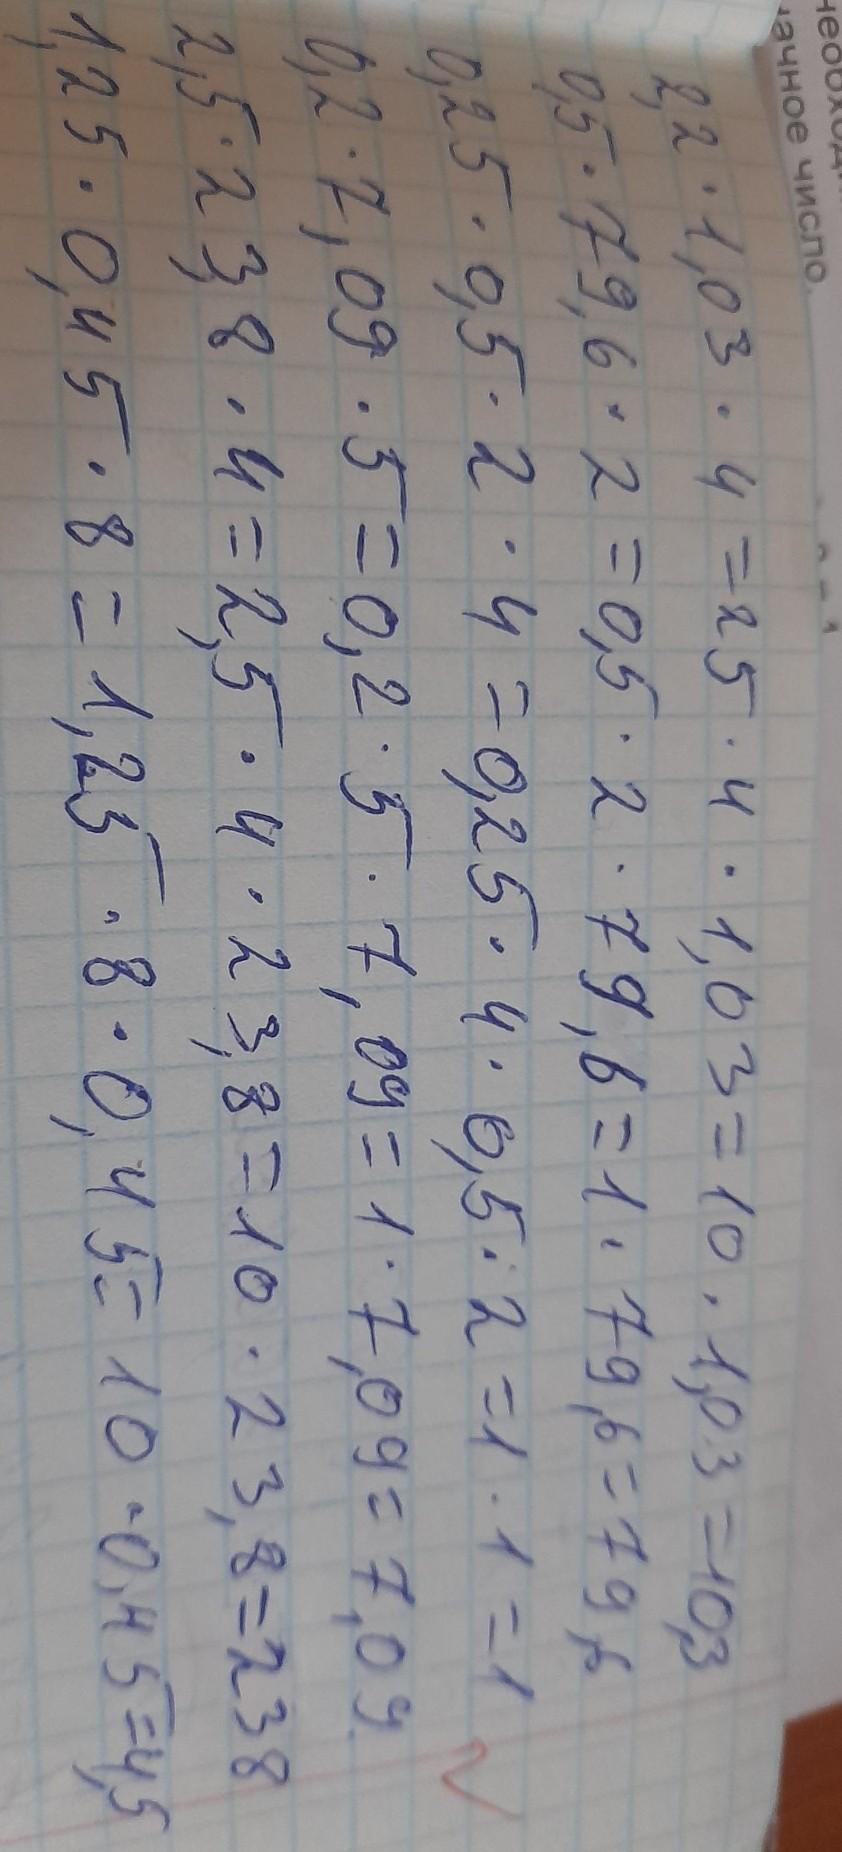 необход
начное число.
2,2 · 1,03 · 4 = 25 · 4 · 1,03 = 10 · 1,03 = 10,3
0,5 · 79,6 · 2 = 0,5 · 2 · 79,6 = 1 · 79,6 = 79,6
0,25 · 0,5 · 2 · 4 = 0,25 · 4 · 0,5 · 2 = 1 · 1 = 1
0,2 · 7,09 · 5 = 0,2 · 5 · 7,09 = 1 · 7,09 = 7,09
2,5 · 23,8 · 4 = 2,5 · 4 · 23,8 = 10 · 23,8 = 238
1,25 · 0,45 · 8 = 1,25 · 8 · 0,45 = 10 · 0,45 = 4,5